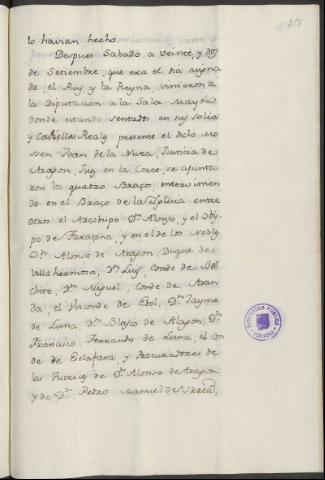 218
lo havian hecho.
Despues Sabado a veinte, y dos
de Setiembre, que era el dia asigna
do, el Rey, y la Reyna, vinieron a
la Diputacion a la Sala Mayor
donde estando sentados en su Solio
y Reales, presente el dicho Mo
ssen Joan de la Nuza, Justicia de
Aragon, Juez en la Corte, se ajunta
ron los quatro Brazos, intervinien
do en el Brazo de la Iglesia entre
otros el Arzobispo Dn. Alonso, y el Obis
po de Tarazona, y en el de los Nobles
Dn. Alonso de Aragon, Duque de
Villa hermosa, Dn. Luis, Conde de Bel
chite, Dn. Miguel, Conde de Aran
da, el Vizconde de Ebol, Dn. Jayme
de Luna, Dn. Blasco de Alagon, Dn.
Francisco Fernando de Luna, el Con
de de Ectafara, y Procuradores de
las de Dn. Alonso de Aragon
y de Dn. Pedro Manuel de Urrea,
BIBLIOTECA PUBLICA
TOLEDO